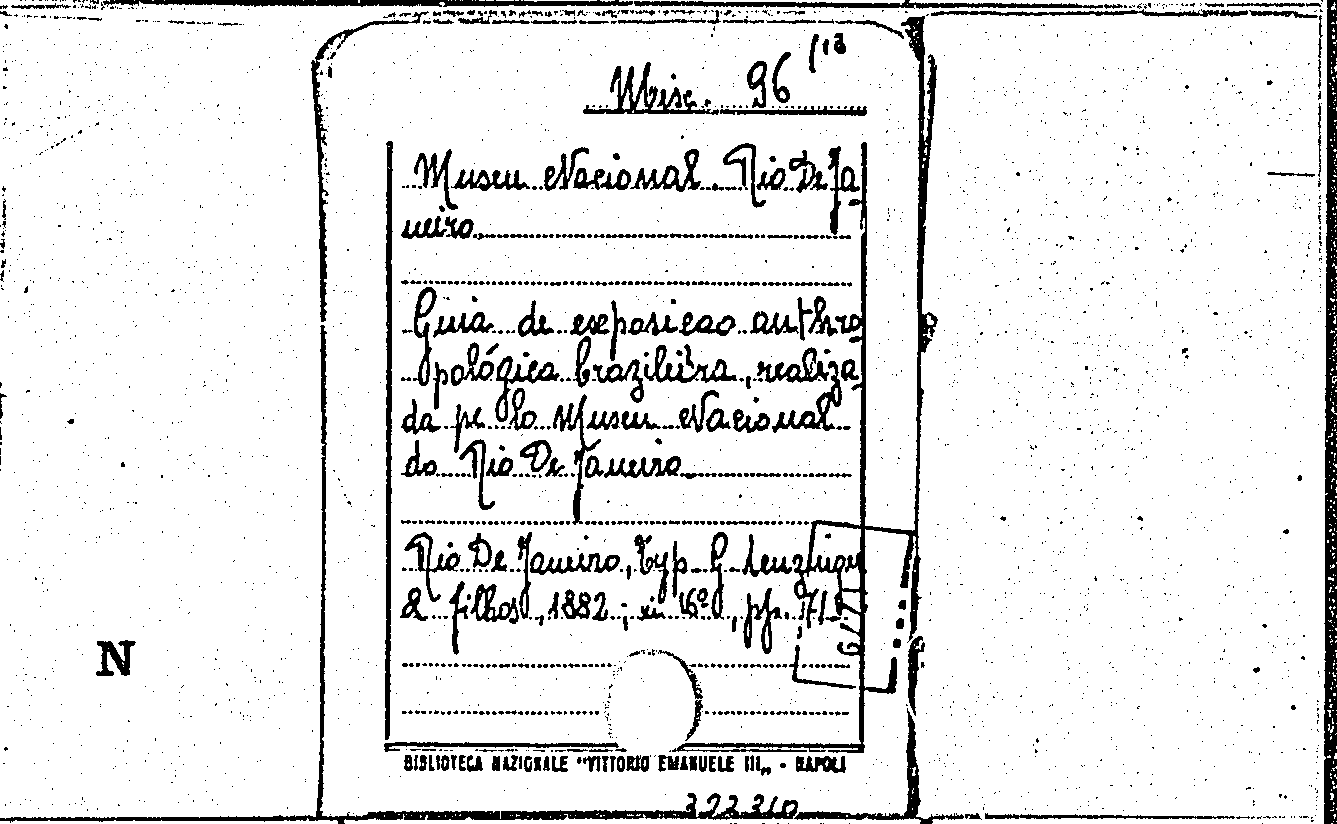 Misc. 96 /13
Museu Nacional. Rio De Ja
neiro.
Guia de exposicao anthro
pológica brazileira, realiza
da pe lo Museu Nacional
do Rio De Janeiro
Rio De Janeiro, Typ. G. Leuzinger
& filhos, 1882; in 16º, pp.
N
BIBLIOTECA NAZIONALE "VITTORIO EMANUELE III„ - NAPOLI
322310